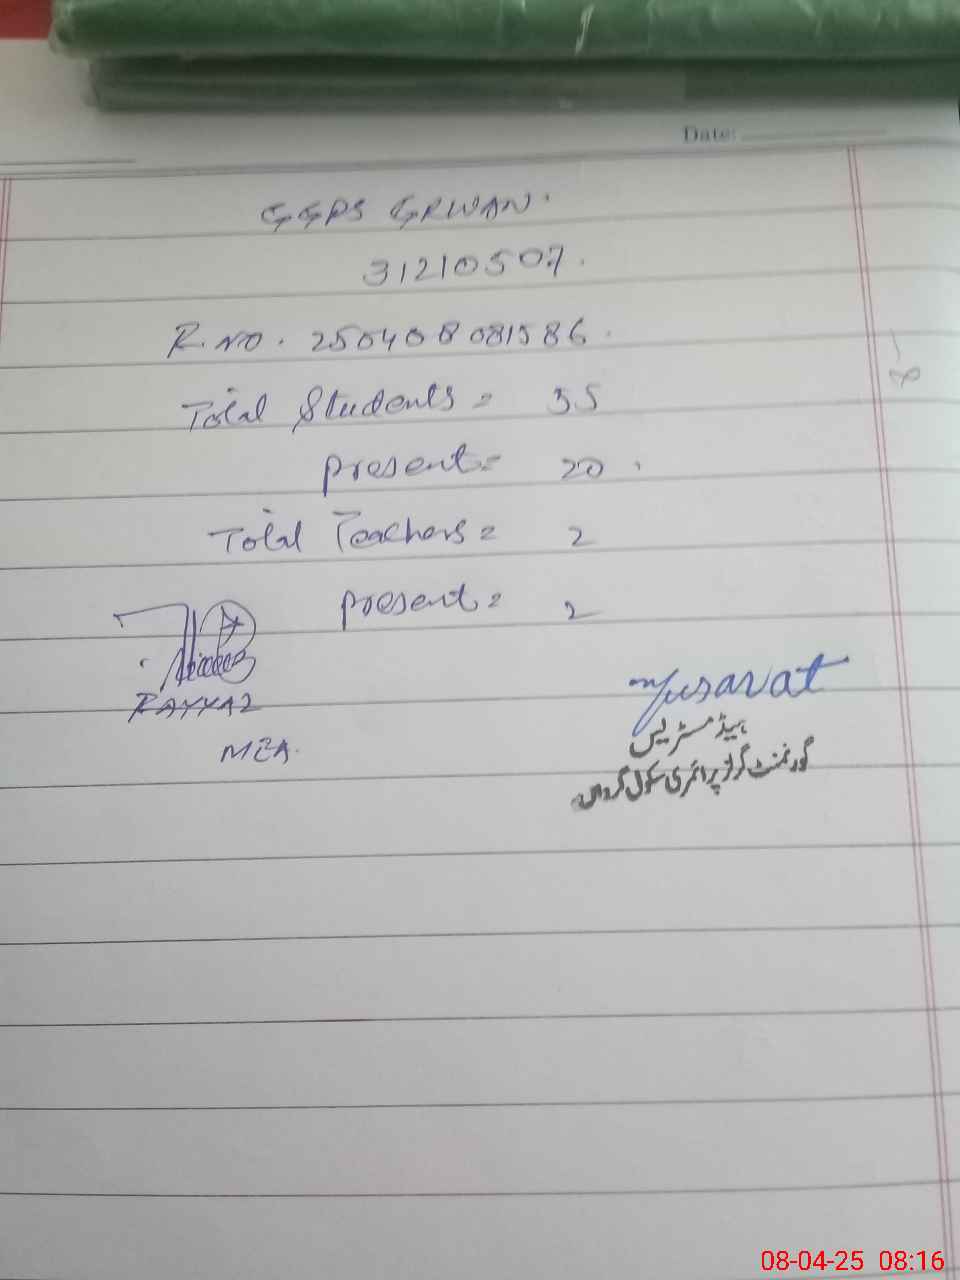 Date:
GGPS GRWAN.
31210507.
R.NO. 250408081586.
Total Students = 35
present = 20.
Total Teachers = 2
present = 2
RAYYAZ
MEA.
Musarat
ہیڈ مسٹریس
گورنمنٹ گرلز پرائمری سکول گرواں
08-04-25 08:16